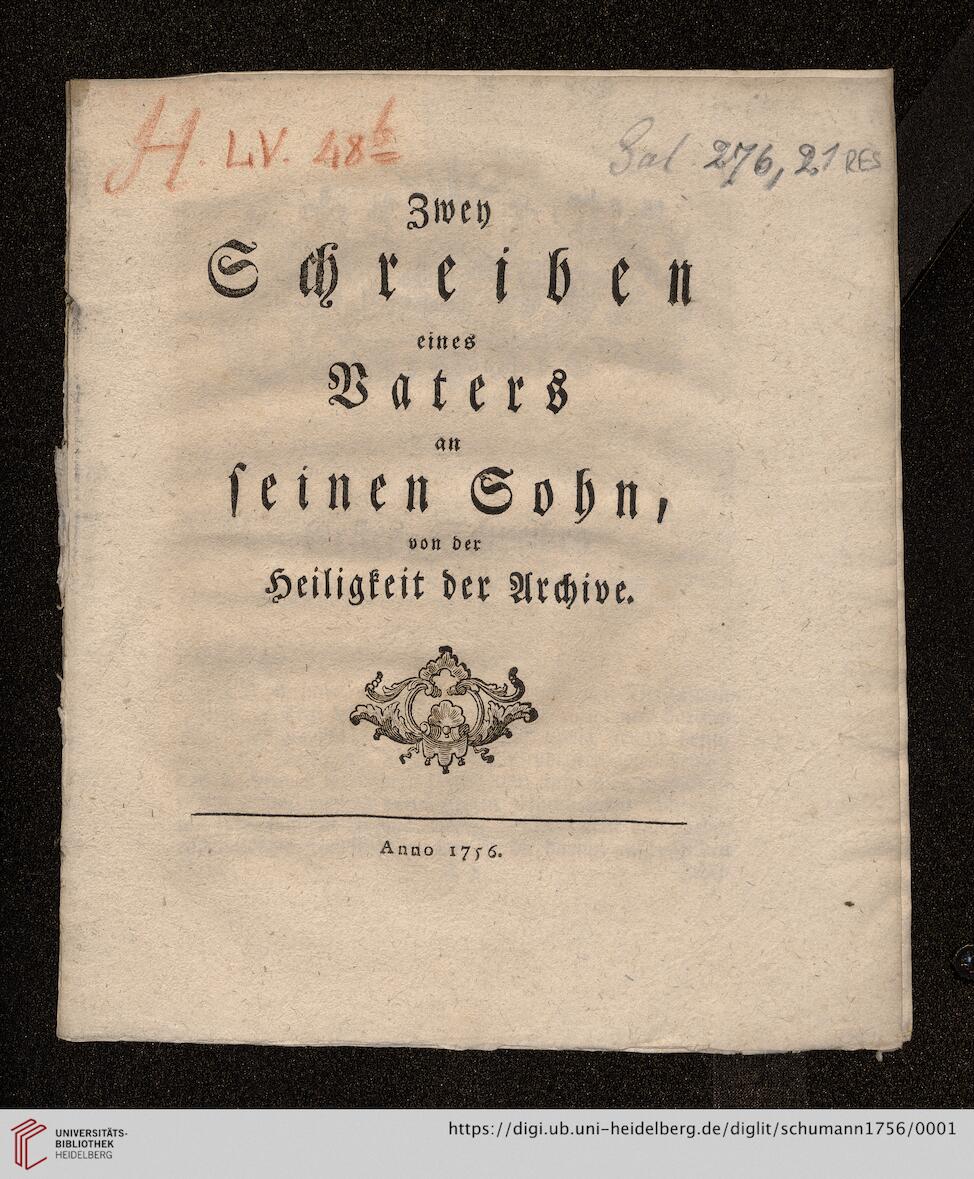 H. L.V. 48b
Sal 276,21 RES
Zwey
Schreiben
eines
Vaters
an
ſeinen Sohn,
von der
Heiligkeit der Archive.
Anno 1756.
UNIVERSITÄTS-
BIBLIOTHEK
HEIDELBERG
https://digi.ub.uni-heidelberg.de/diglit/schumann1756/0001